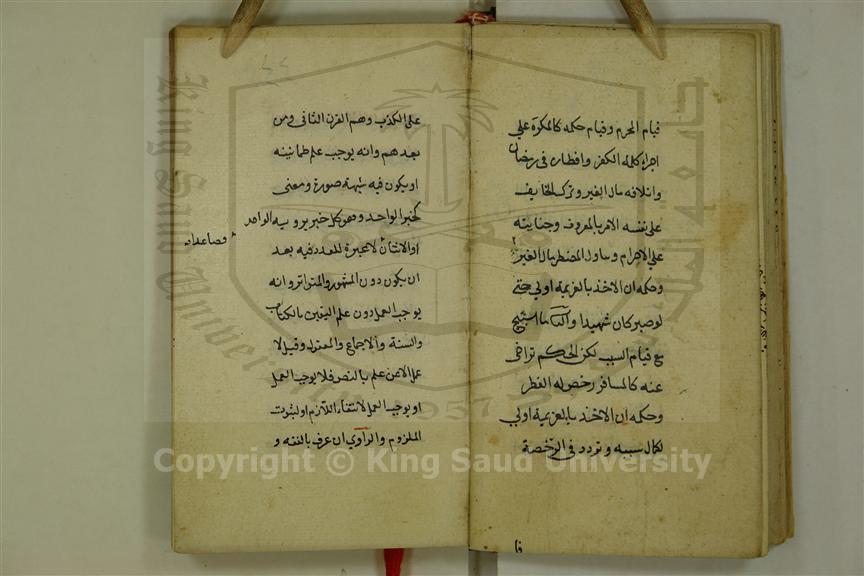 قيام المحرم وقيام حكمه كالمكره علي
اجراء كلمة الكفر وافطاره فى رمضان
واتلافه مال الغير وترك الخايف
على نفسه الامر بالمعروف وجنايته
علي الاحرام وتناول المضطر مال الغير
وحكمه ان الاخذ بالعزيمة اولي حتى
لو صبر كان شهيدا والثاني ما استبيح
مع قيام السبب لكن الحكم تراخى
عنه كالمسافر رخص له الفطر
وحكمه ان الاخذ بالعزيمة اولي
لكمال سببه وتردد فى الرخصة
فا
على الكذب وهم القرن الثانى ومن
بعدهم وانه يوجب علم طمانينة
او يكون فيه شبهة صورة ومعنى
كخبر الواحد وهو كل خبر يرويه الواحد
او الاثنان فصاعدا
لا عبرة للعدد فيه بعد
ان يكون دون المشهور والمتواتر وانه
يوجب العمل دون علم اليقين بالكتاب
والسنة والاجماع والمعقول وقيل لا
عمل الا عن علم بالنص فلا يوجب العمل
او يوجب العمل لانتفاء اللازم او لثبوت
الملزوم والراوي ان عرف بالفقه و
Copyright © King Saud University
King Saud University
جامعة الملك سعود
1957